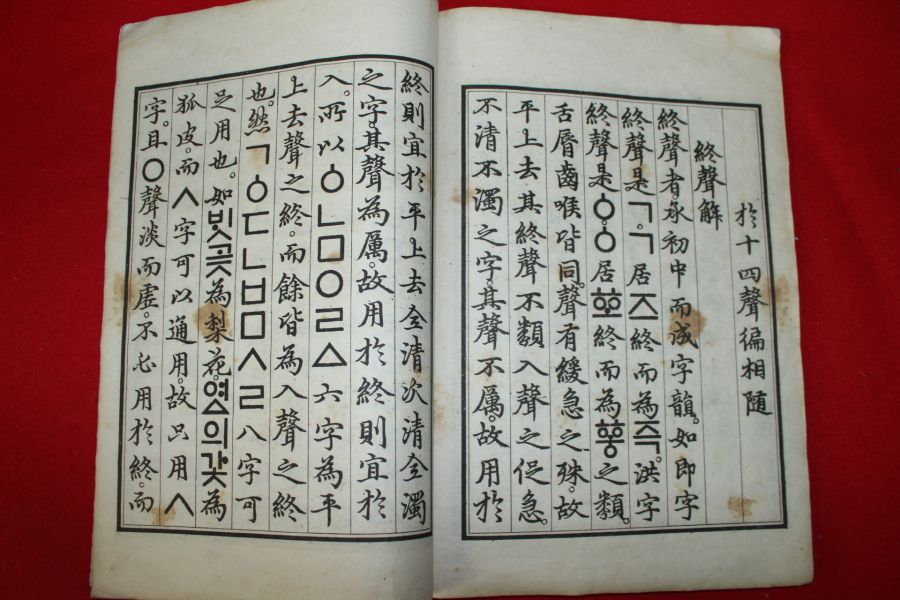 於十四聲徧相随
終聲解
終聲者承初中而成字韻。如即字
終聲是ㄱ。ㄱ居즈終而為즉。洪字
終聲是ㆁ。ㆁ居ᅘᅩ終而為ᅘᅩᇰ之類。
舌脣齒喉皆同。聲有緩急之殊。故
平上去其終聲不類入聲之促急。
不清不濁之字。其聲不厲。故用於
終則宜於平上去全清次清全濁
之字。其聲為厲。故用於終則宜於
入。所以ㆁㄴㅁㅇㄹㅿ六字為平
上去聲之終。而餘皆為入聲之終
也。然ㄱㆁㄷㄴㅂㅁㅅㄹ八字可
足用也。如ᄇᆡᆺ곶為梨花。여ᇫ의갗為
狐皮。而ㅅ字可以通用。故只用ㅅ
字。且ㅇ聲淡而虛。不必用於終。而